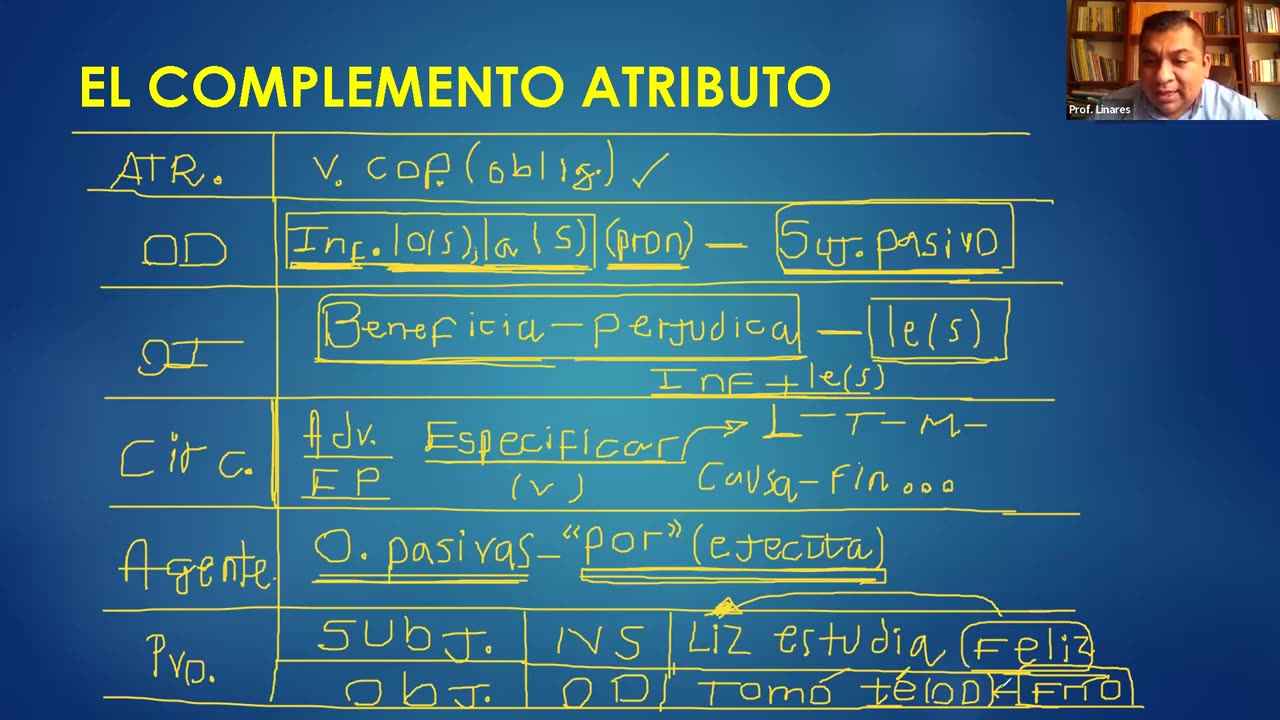 EL COMPLEMENTO ATRIBUTO
Prof. Linares
ATR. V. COP. (oblig.) ✓
OD Inf. lo(s), la(s) (pron) — Suj. pasivo
OI Beneficia - perjudica — le(s)
Inf + le(s)
Circ. Adv. Especificar → L - T - M -
FP (v) Causa - Fin ...
Agente O. pasivas - "por" (ejecuta)
Pvo. SUBJ. NS Liz estudia Feliz
Obj. OD Tomó té (OD) Frío